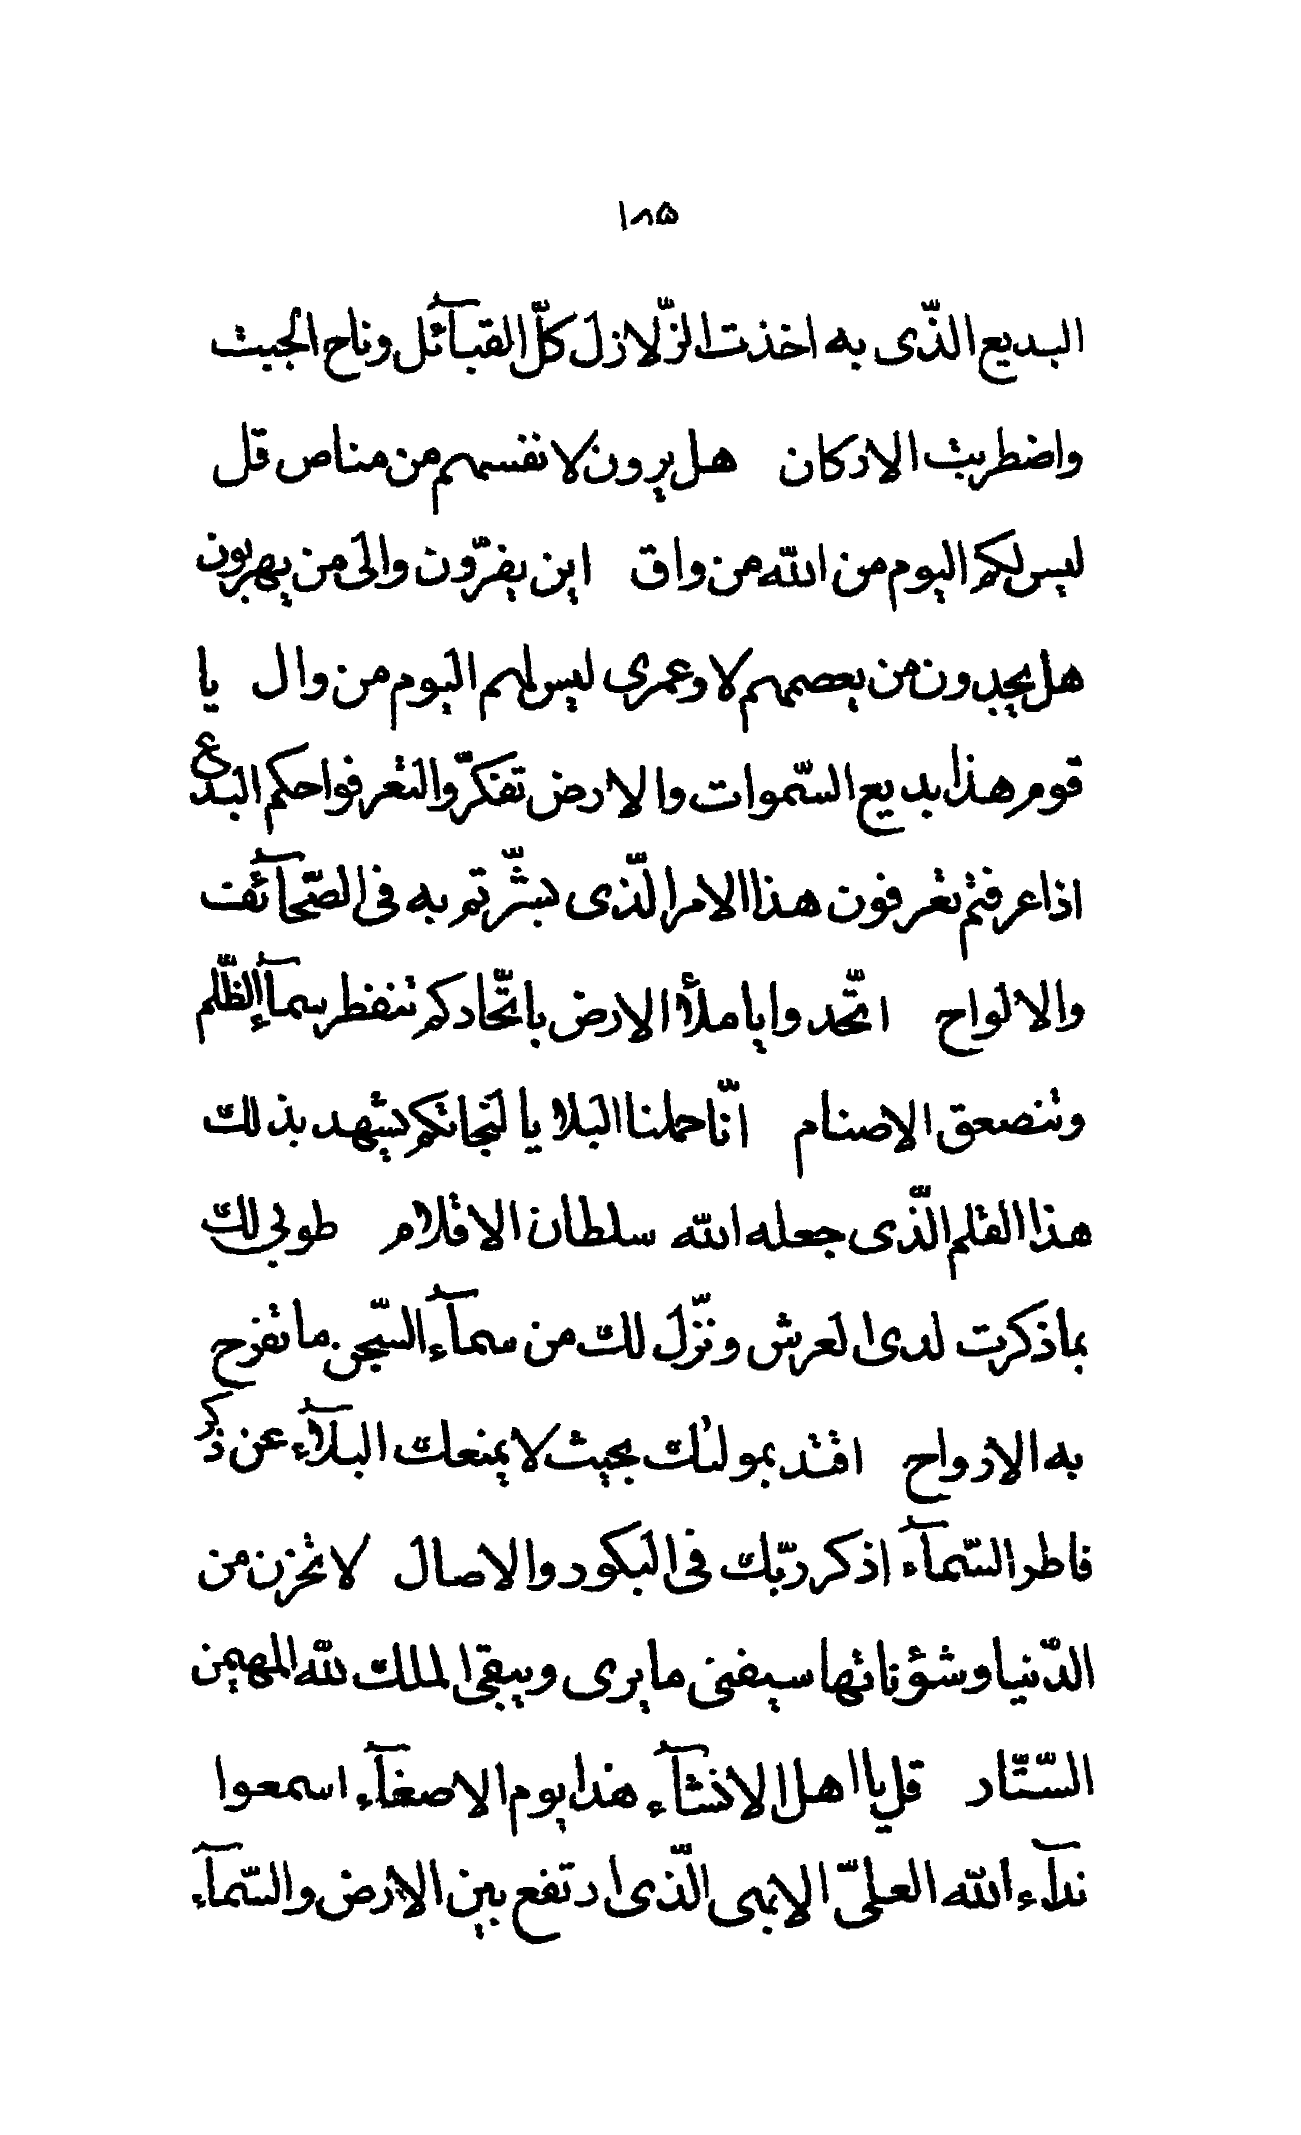 ١٨۵
البديع الذّى به اخذت الزّلازل كلّ القبآئل وناح الجبت
واضطربت الاركان هل يرون لانفسهم من مناص قل
ليس لكم اليوم من الله من واق اين يفرّون والى من يهربون
هل يجدون من يعصمهم لا وعمرى ليس لهم اليوم من وال يا
قوم هذا بديع السّموات والارض تفكرّوا لتعرفوا حكم البدع
اذا عرفتم تعرفون هذا الامر الّذى بشّرتم به فى الصّحآئف
والالواح اتّحدوا يا ملأ الارض باتّحادكم تنفطر سمآء الظّلم
وتنصعق الاصنام انّا حملنا البلايا لنجاتكم يشهد بذلك
هذا القلم الّذى جعله الله سلطان الاقلام طوبى لك
بما ذكرت لدى العرش ونزّل لك من سمآء السّجن ما تفرح
به الارواح اقتد بموليٰك بحيث لا يمنعك البلآء عن ذكر
فاطر السّمآء اذكر ربّك فى البكور والاصال لا تحزن من
الدّنيا وشؤناتها سيفنى ما يرى ويبقى الملك لله المهيمن
السّتّار قل يا اهل الانشآء هذا يوم الاصغآء اسمعوا
ندآء الله العلىّ الابهى الّذى ارتفع بين الارض والسّمآء